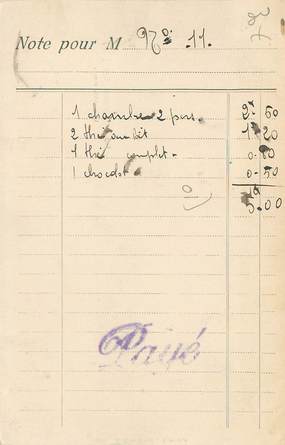 Note pour M No. 11.
1 chambre 2 pers. 2. 50
2 thé au lait 1. 20
1 thé complet. 0. 80
1 chocolat. 0. 50
5.00
Payé